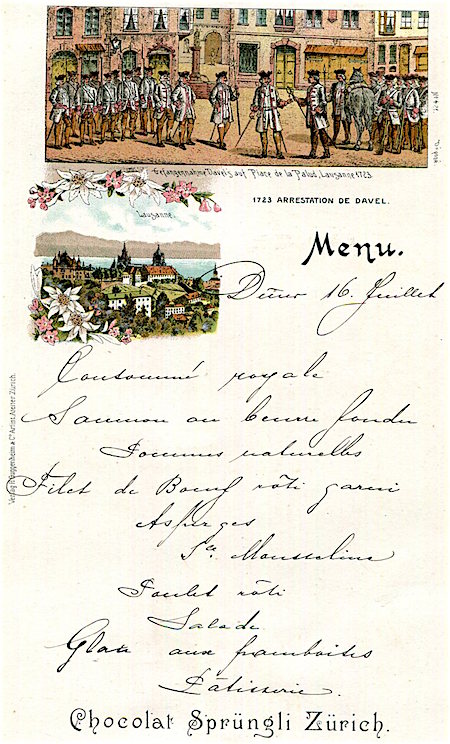 Gefangennahme Davel's auf Place de la Palud, Lausanne 1723.
1723 ARRESTATION DE DAVEL.
Lausanne.
Menu.
Dîner 16. Juillet
Consommé royale
Saumon au beurre fondu
Pommes naturelles
Filet de Boeuf rôti garni
Asperges
Sce Mousseline
Poulet rôti
Salade
Glace aux framboises
Pâtisserie.
Verlag R. Guggenheim & Co Artist. Atelier Zürich.
Chocolat Sprüngli Zürich.